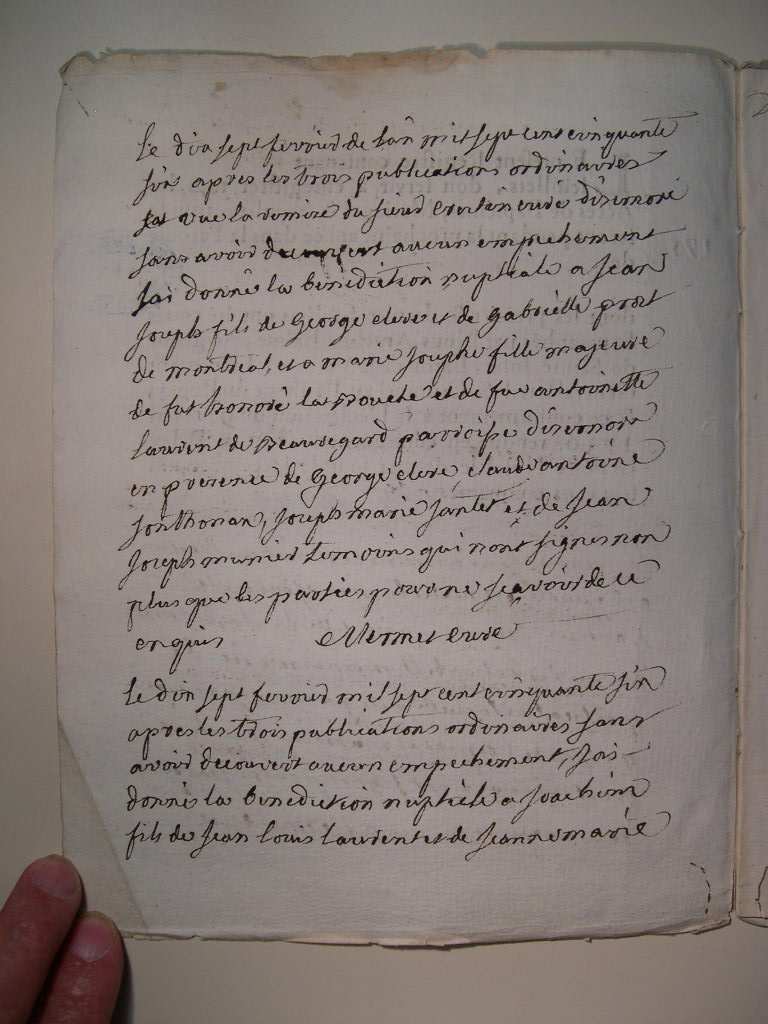 Le dix sept fevrier de lan mil sept cent cinquante
six apres les trois publications ordinaires
et vue la remise du sieur curé disernore
sans avoir decouvert aucun empechement
jai donné la bénédiction nuptiale a jean
joseph fils de George clerc et de gabrielle prost
de montreal, et a marie josephe fille majeure
de fut honoré la et de fue antoinette
laurent de Beauregard parroisse disernore
en presence de George clerc, claude antoine
jonthonan, joseph marie jantet et de jean
joseph munier temoins qui nont signes non
plus que les parties pour ne scavoir de ce
enquis Mermet curé
le dix sept fevrier mil sept cent cinquante six
apres les trois publications ordinaires sans
avoir decouvert aucun empechement, jai
donné la benediction nuptiale a joachim
fils de jean louis laurent et de jeanne marie